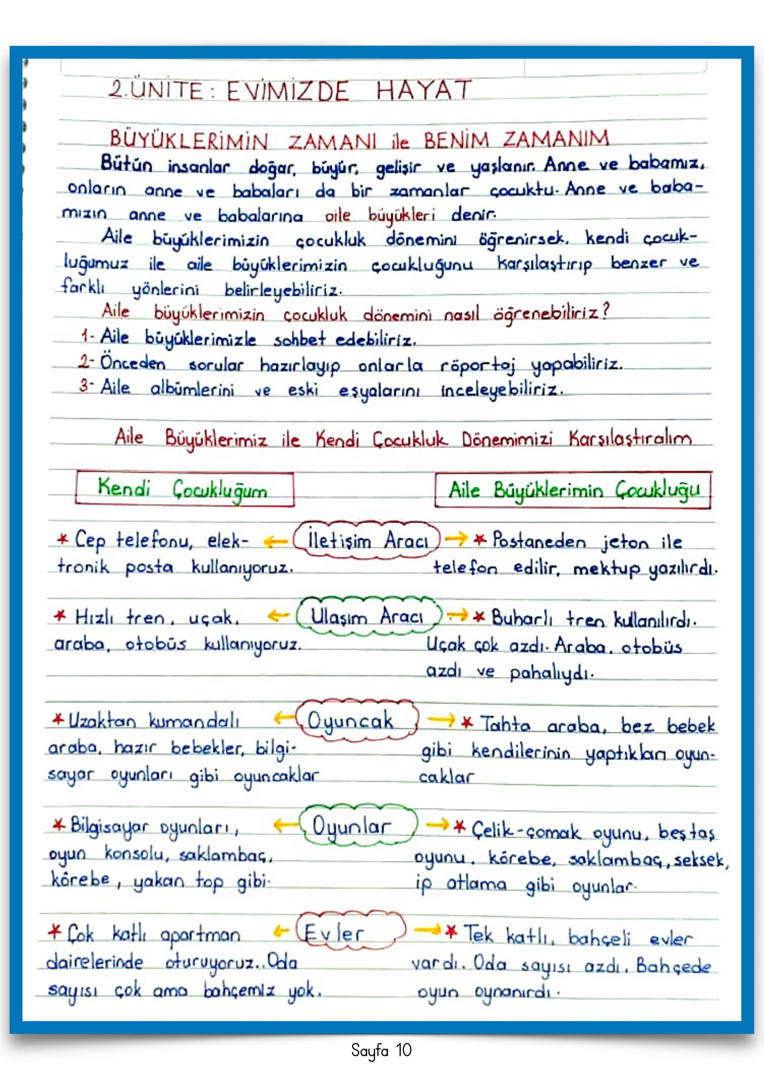 2.ÜNİTE: EVİMİZDE HAYAT
BÜYÜKLERİMİN ZAMANI ile BENİM ZAMANIM
Bütün insanlar doğar, büyür, gelişir ve yaşlanır. Anne ve babamız,
onların anne ve babaları da bir zamanlar çocuktu. Anne ve baba-
mızın anne ve babalarına aile büyükleri denir.
Aile büyüklerimizin çocukluk dönemini öğrenirsek, kendi çocuk-
luğumuz ile aile büyüklerimizin çocukluğunu karşılaştırıp benzer ve
farklı yönlerini belirleyebiliriz.
Aile büyüklerimizin çocukluk dönemini nasıl öğrenebiliriz?
1- Aile büyüklerimizle sohbet edebiliriz.
2- Önceden sorular hazırlayıp onlarla röportaj yapabiliriz.
3- Aile albümlerini ve eski eşyalarını inceleyebiliriz.
Aile Büyüklerimiz ile Kendi Çocukluk Dönemimizi Karşılaştıralım
Kendi Çocukluğum
Aile Büyüklerimin Çocukluğu
* Cep telefonu, elek-
tronik posta kullanıyoruz.
İletişim Aracı
* Postaneden jeton ile
telefon edilir, mektup yazılırdı.
* Hızlı tren, uçak,
araba, otobüs kullanıyoruz.
Ulaşım Aracı
* Buharlı tren kullanılırdı.
Uçak çok azdı. Araba, otobüs
azdı ve pahalıydı.
* Uzaktan kumandalı
araba, hazır bebekler, bilgi-
sayar oyunları gibi oyuncaklar
Oyuncak
* Tahta araba, bez bebek
gibi kendilerinin yaptıkları oyun-
caklar
* Bilgisayar oyunları,
oyun konsolu, saklambaç,
körebe, yakan top gibi.
Oyunlar
* Çelik-çomak oyunu, beş taş
oyunu, körebe, saklambaç, seksek,
ip atlama gibi oyunlar.
* Çok katlı apartman
dairelerinde oturuyoruz..Oda
sayısı çok ama bahçemiz yok.
Evler
* Tek katlı, bahçeli evler
vardı. Oda sayısı azdı. Bahçede
oyun oynanırdı.
Sayfa 10